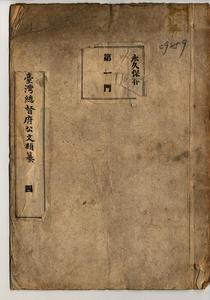 永久保存
第一門
臺灣總督府公文類纂 四